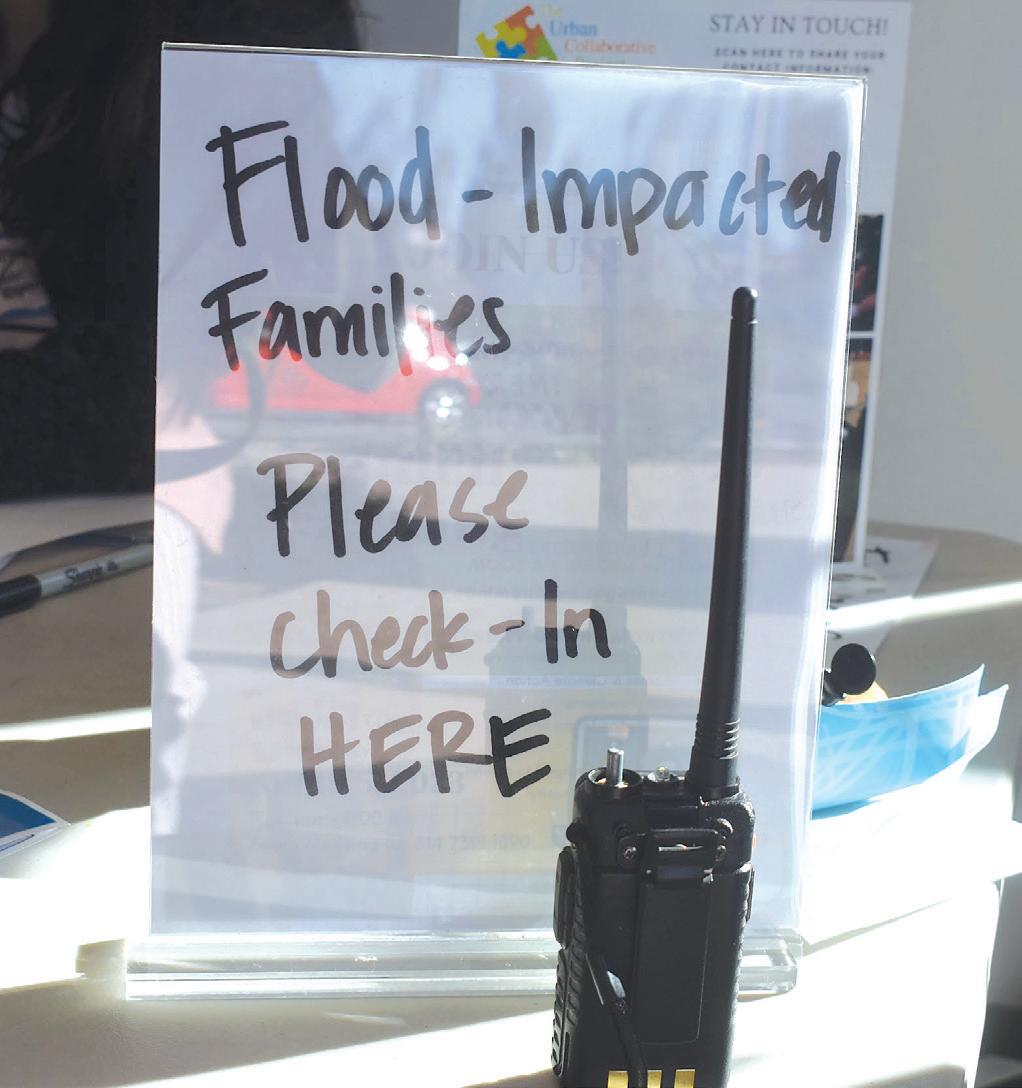 The
Urban
Collaborative
STAY IN TOUCH!
SCAN HERE TO SHARE YOUR
CONTACT INFORMATION!
Flood-Impacted
Families
Please
Check-In
HERE
JOIN US!
Sharpie